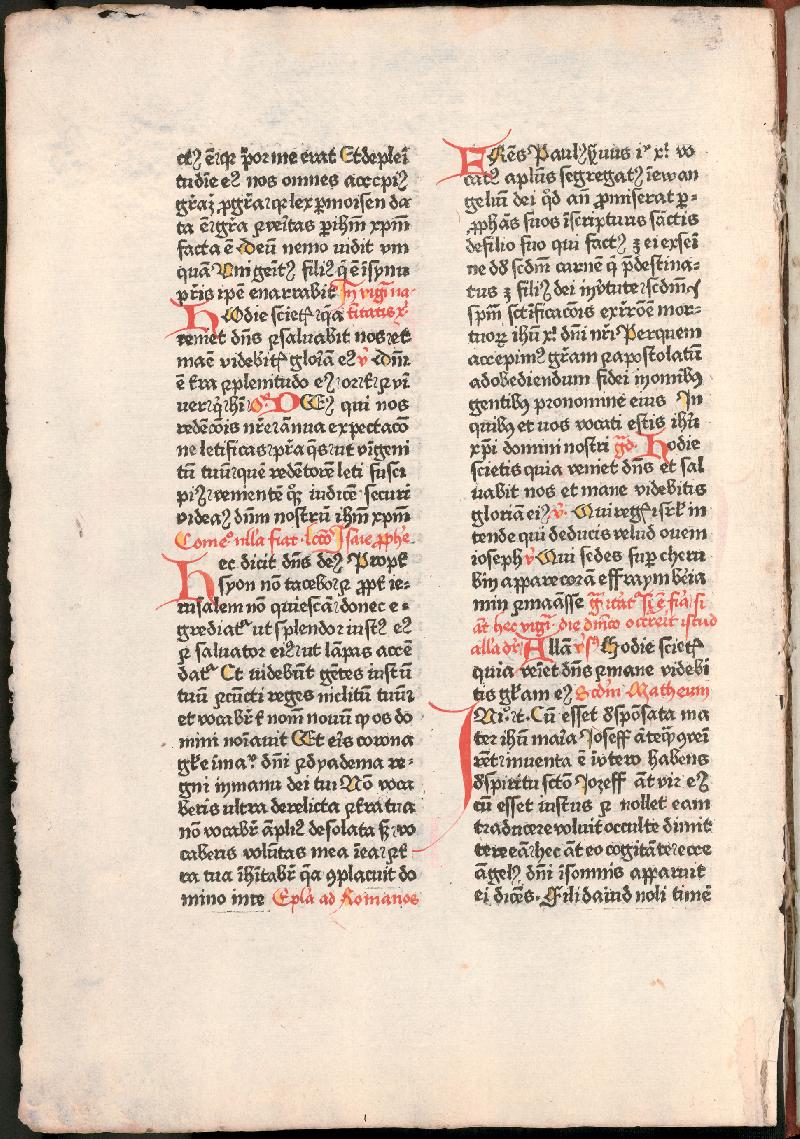 ctꝰ ē qꝛ pꝛior me erat Et de plei
tudīe eiꝰ nos omnes accepimꝰ
gr̄az ꝓ gr̄a qꝛ lex p moisen da
ta ē gr̄a ꝛ veītas p ihm̄ xpm̄
facta ē Deū nemo uidit vm
quā Vnigeītꝰ filiꝰ q̄ ē ī synu
pr̄is ip̄e enarrabit In vigi na
Hodie scietꝭ q̄a titatis xͥ
veniet dn̄s ꝛ saluabit nos et
mane videbitꝭ gloriā eiꝰ v̄ Dn̄i
ē tr̄a ꝛ plenitudo eiꝰ orꝭ ꝛ vni
uer q̄ hi Or̄o DEꝰ qui nos
redēcōis nr̄e ānua expectacō
ne letificas pr̄a q̄s ut vīgeni
tū tuū quē redētorē leti susci
pimꝰ venientē qꝫ iudicē securi
videaꝰ dn̄m nostrū ihm̄ xpm̄
Comeº ulla fiat lccō Isaie ꝓphe
Hec dicit dn̄s deꝰ Propꝭ
syon nō tacebo ꝛ ꝓpꝭ ie-
rusalem nō quiescā donec e-
grediatᷣ ut splendor iustꝰ eiꝰ
ꝛ saluator eiꝰ ut lāpas accē
datᷣ Et uidebūt gētes iustū
tuū ꝛ cuncti reges inclitū tuū
et vocabrꝭ nomē nouū qͦ os do
mini noīauit Et eris corona
glꝭe ī maᵘ dn̄i ꝛ dyadema re-
gni in manu dei tui Nō voca
beris ultra derelicta ꝛ tr̄a tua
nō vocabr̄ āpliꝰ desolata sꝫ vo
caberis volūtas mea ī ea ꝛ tꝭ
ra tua īhītabr̄ q̄a ꝯplacuit do
mino in te Epl̄a ad Romanos
FRēs Paulꝰ s̄uus iᵘ xͥ vo
catꝰ apl̄us segregatꝰ in ewan
geliū dei qd̄ an̄ ꝓmiserat p-
ꝓphās suos ī scripturis sāctis
de filio suo qui factꝰ ē ei ex sei
ne dd̄ scdm̄ carnē q̄ pdestina-
tus ē filiꝰ dei in v̄tute scdm̄
spm̄ sctificacōis ex r̄rōne mor-
tuoꝝ ihū xͥ dn̄i nr̄i Per quem
accepimꝰ gr̄am ꝛ apostolatū
ad obediendum fidei in omībꝰ
gentibꝰ pro nomine eius In
quibꝰ et uos vocati estis ihū
xp̄i domini nostri gͦ. Hodie
scietis quia veniet dn̄s et sal
uabit nos et mane videbitis
gloriā eiꝰ v̄. Qui regꝭ isrl̄ in
tende qui deducis velud ouem
ioseph v̄ Qui sedes sup cheru
bin appare corā effraym bēia
min ꝛ manasse
at hec vigi die dīnco occrrerit istud
alla dr̄ Allā v̄sᵘ Hodie scietꝭ
quia veniet dn̄s ꝛ mane videbi
tis glr̄am eiꝰ Scdm̄ Matheum
INi°.t. Cū esset dspōsata ma
ter ihū maīa Joseff ātēqͣ ꝯvei
rēt inuenta ē ī vtero habens
d spiritu scto Jozeff at vir eiꝰ
cū esset iustus ꝛ nollet eam
traducere voluit occulte dimit
tere eā hec āt eo cogitāte ecce
āgelꝰ dn̄i ī somnis apparuit
ei dicēs. Fili dauid noli timē